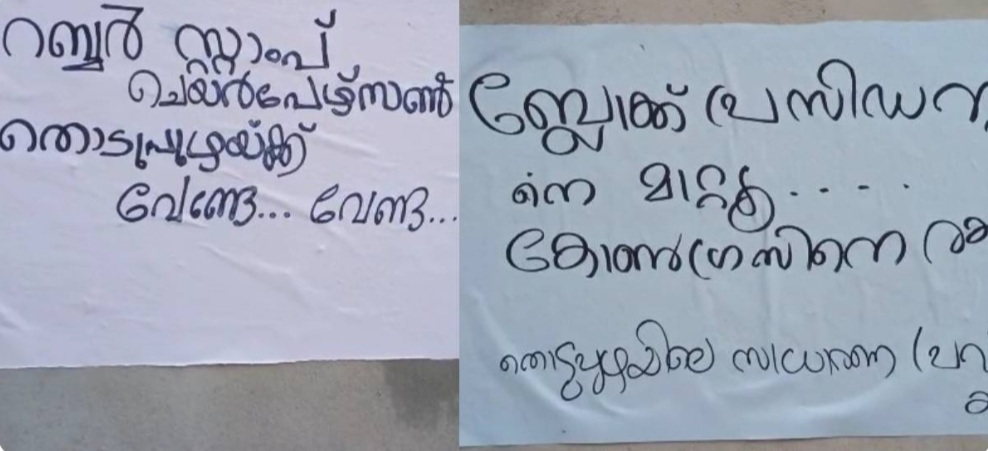 റബ്ബർ സ്റ്റാംപ്
ചെയർപേഴ്സൺ
തൊടുപുഴയ്ക്ക്
വേണ്ടേ... വേണ്ട...
ബ്ലോക്ക് പ്രസിഡന്റി
നെ മാറ്റൂ.....
കോൺഗ്രസിനെ
തൊടുപുഴയിലെ സാധാരണ